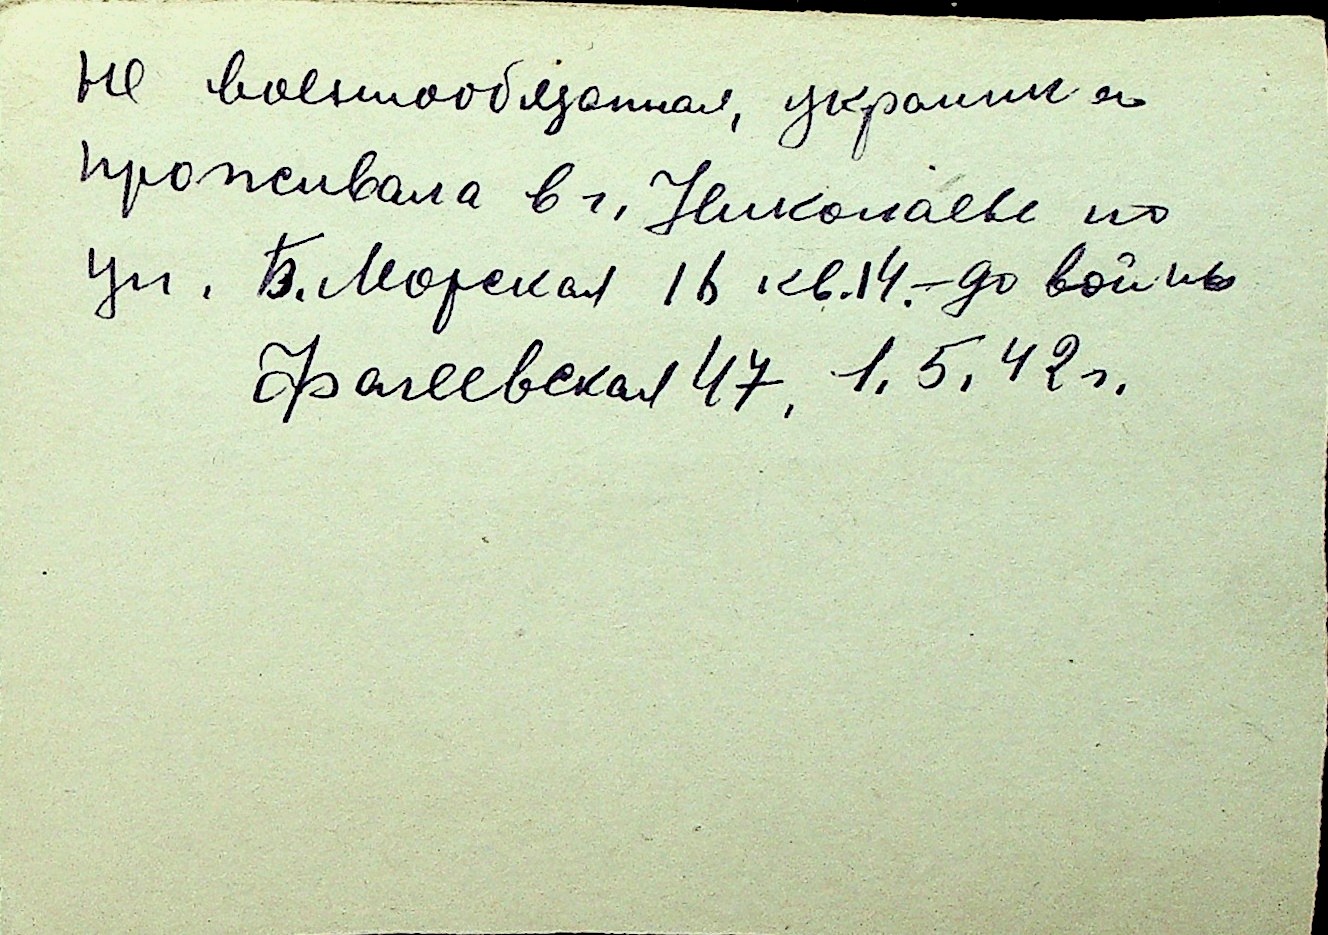 не военнообязанная, украинка
проживала в г. Николаеве по
ул. Б. Морская 16 кв. 14. – до войны
Фалеевская 47, 1.5.42 г.